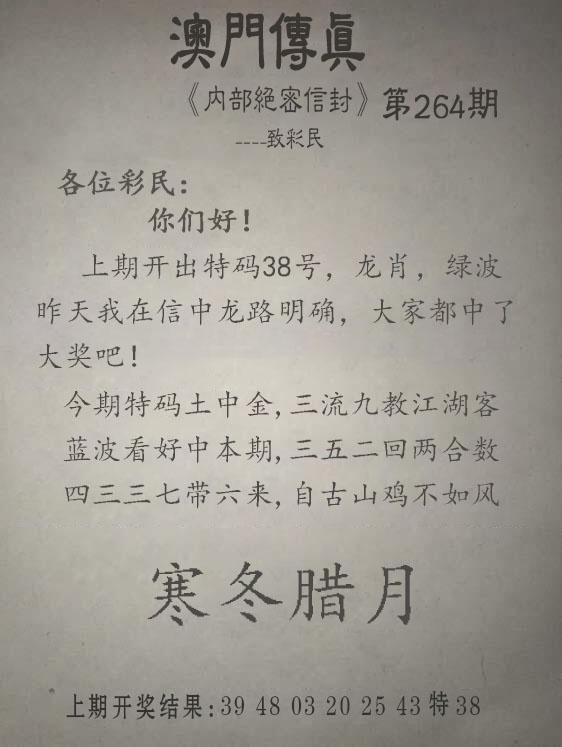 澳門傳真
《内部絕密信封》第264期
----致彩民
各位彩民:
你们好!
上期开出特码38号，龙肖，绿波
昨天我在信中龙路明确，大家都中了
大奖吧!
今期特码土中金,三流九教江湖客
蓝波看好中本期,三五二回两合数
四三三七带六来,自古山鸡不如风
寒冬腊月
上期开奖结果:39 48 03 20 25 43 特 38